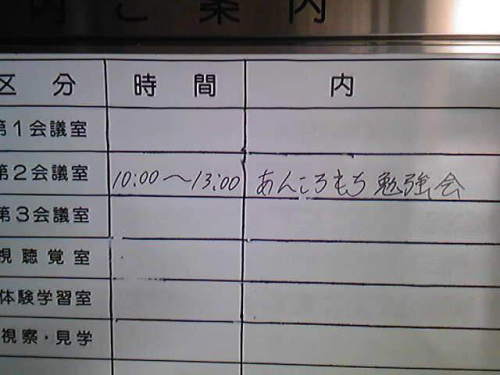 内ご案内
区分 時間 内
第1会議室
第2会議室 10:00〜13:00 あんころもち勉強会
第3会議室
視聴覚室
体験学習室
視察・見学